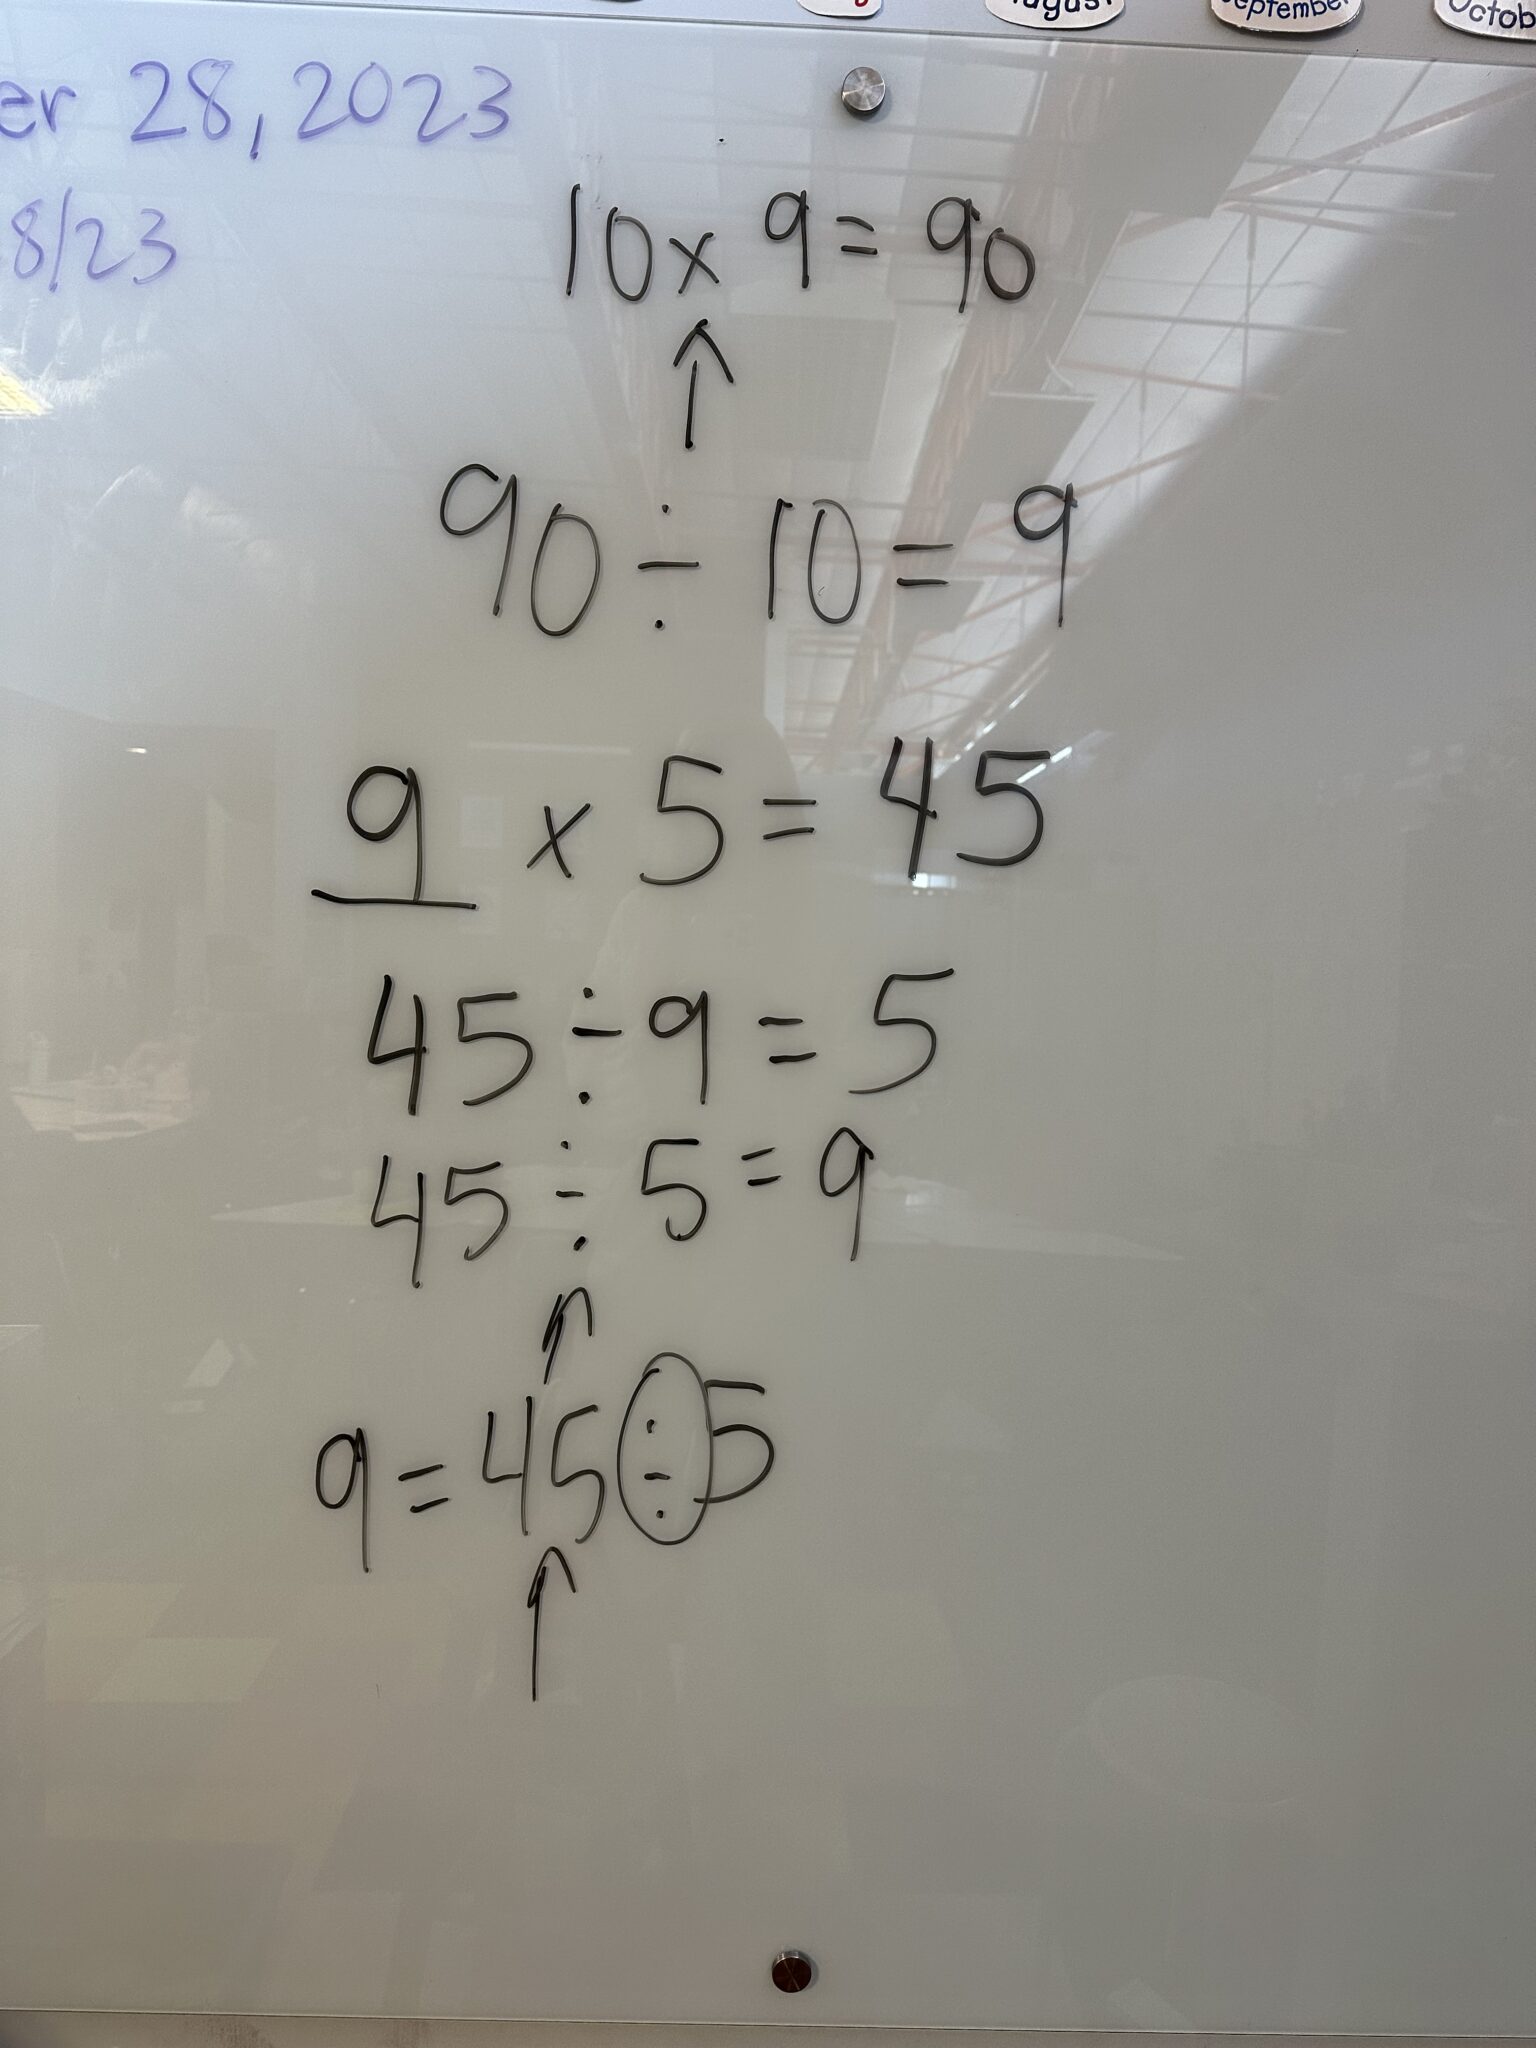 August September Octob
er 28, 2023
8/23
10 x 9 = 90
90 ÷ 10 = 9
9 x 5 = 45
45 ÷ 9 = 5
45 ÷ 5 = 9
9 = 45 ÷ 5